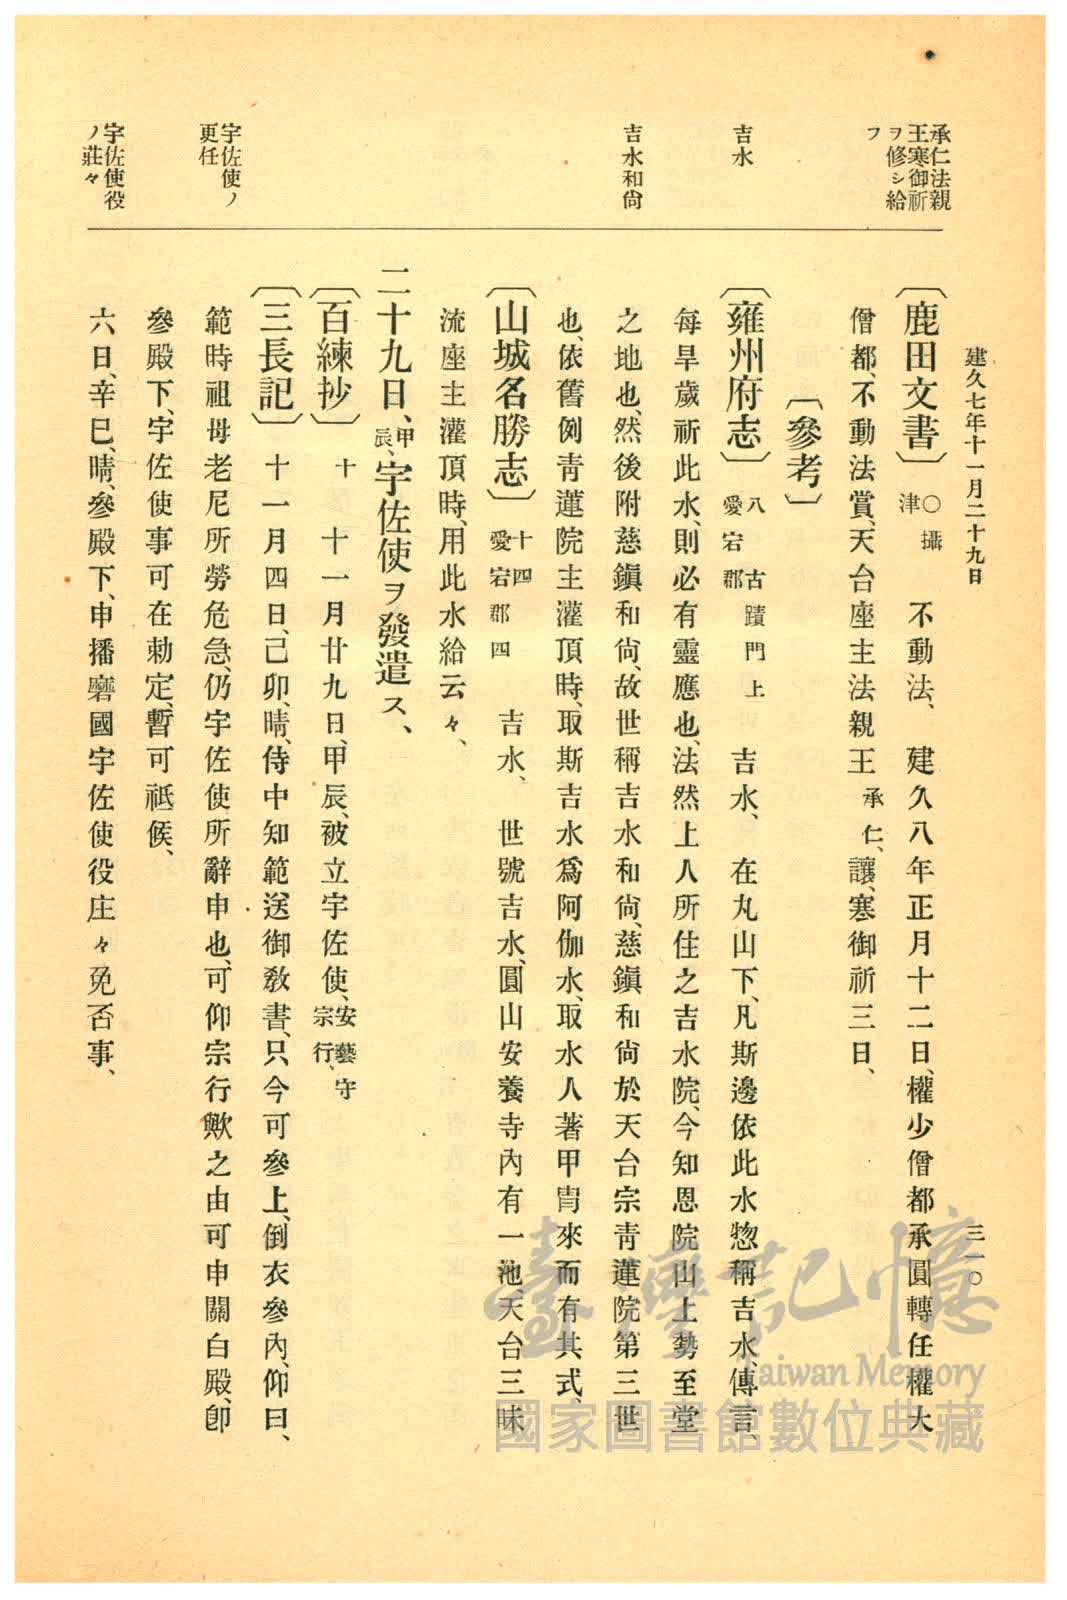 建久七年十一月二十九日
三一〇
承仁法親
王寒御祈
ヲ修シ給
フ
吉水
吉水和尙
宇佐使ノ
更任
宇佐使役
ノ莊々
〔鹿田文書〕 〇攝津 不動法、 建久八年正月十二日、權少僧都承圓轉任權大
僧都、不動法賞、天台座主法親王承仁、讓、寒御祈三日、
〔參考〕
〔雍州府志〕 八 古蹟門上 愛宕郡 吉水、 在丸山下、凡斯邊依此水惣稱吉水、傳言、
每旱歲祈此水、則必有靈應也、法然上人所住之吉水院、今知恩院山上勢至堂
之地也、然後附慈鎭和尙、故世稱吉水和尙、慈鎭和尙於天台宗靑蓮院第三世
也、依舊例靑蓮院主灌頂時、取斯吉水爲阿伽水、取水人著甲冑來而有其式、
〔山城名勝志〕 十四 愛宕郡四 吉水、 世號吉水、圓山安養寺內有一池、天台三昧
流座主灌頂時、用此水給云々、
二十九日、甲辰、宇佐使ヲ發遣ス、
〔百練抄〕 十 十一月廿九日、甲辰、被立宇佐使、安藝守宗行、
〔三長記〕 十一月四日、己卯、晴、侍中知範、送御敎書、只今可參上、倒衣參內、仰曰、
範時祖母老尼所勞危急、仍宇佐使所辭申也、可仰宗行歟之由可申關白殿、卽
參殿下、宇佐使事可在勅定、暫可祗候、
六日、辛巳、晴、參殿下、申播磨國宇佐使役庄々免否事、
臺灣記憶
Taiwan Memory
國家圖書館數位典藏